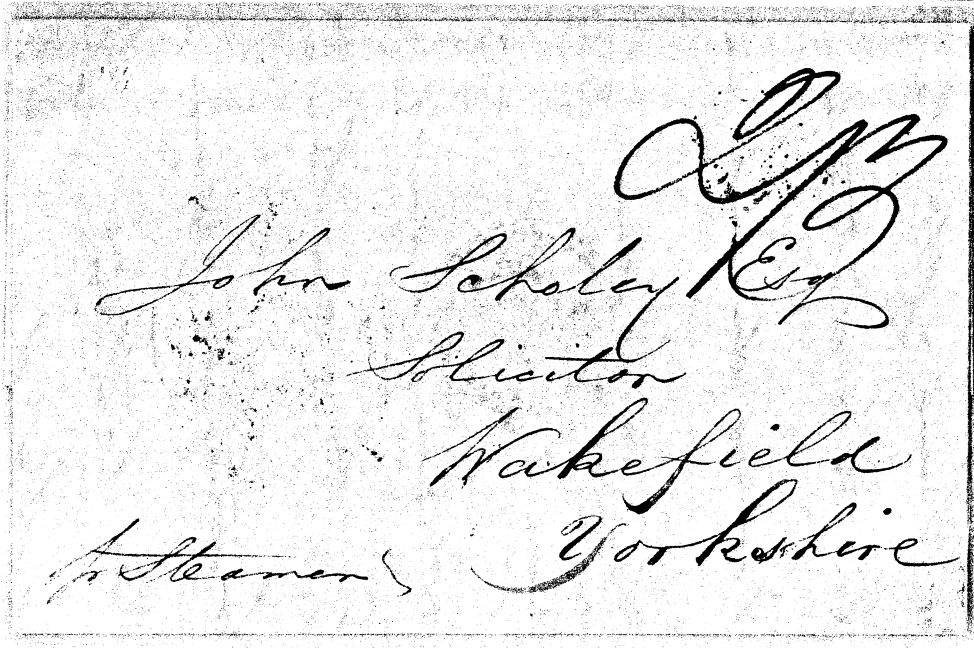 John Scholey Esq
Solicitor
Wakefield
Yorkshire
pr Steamer